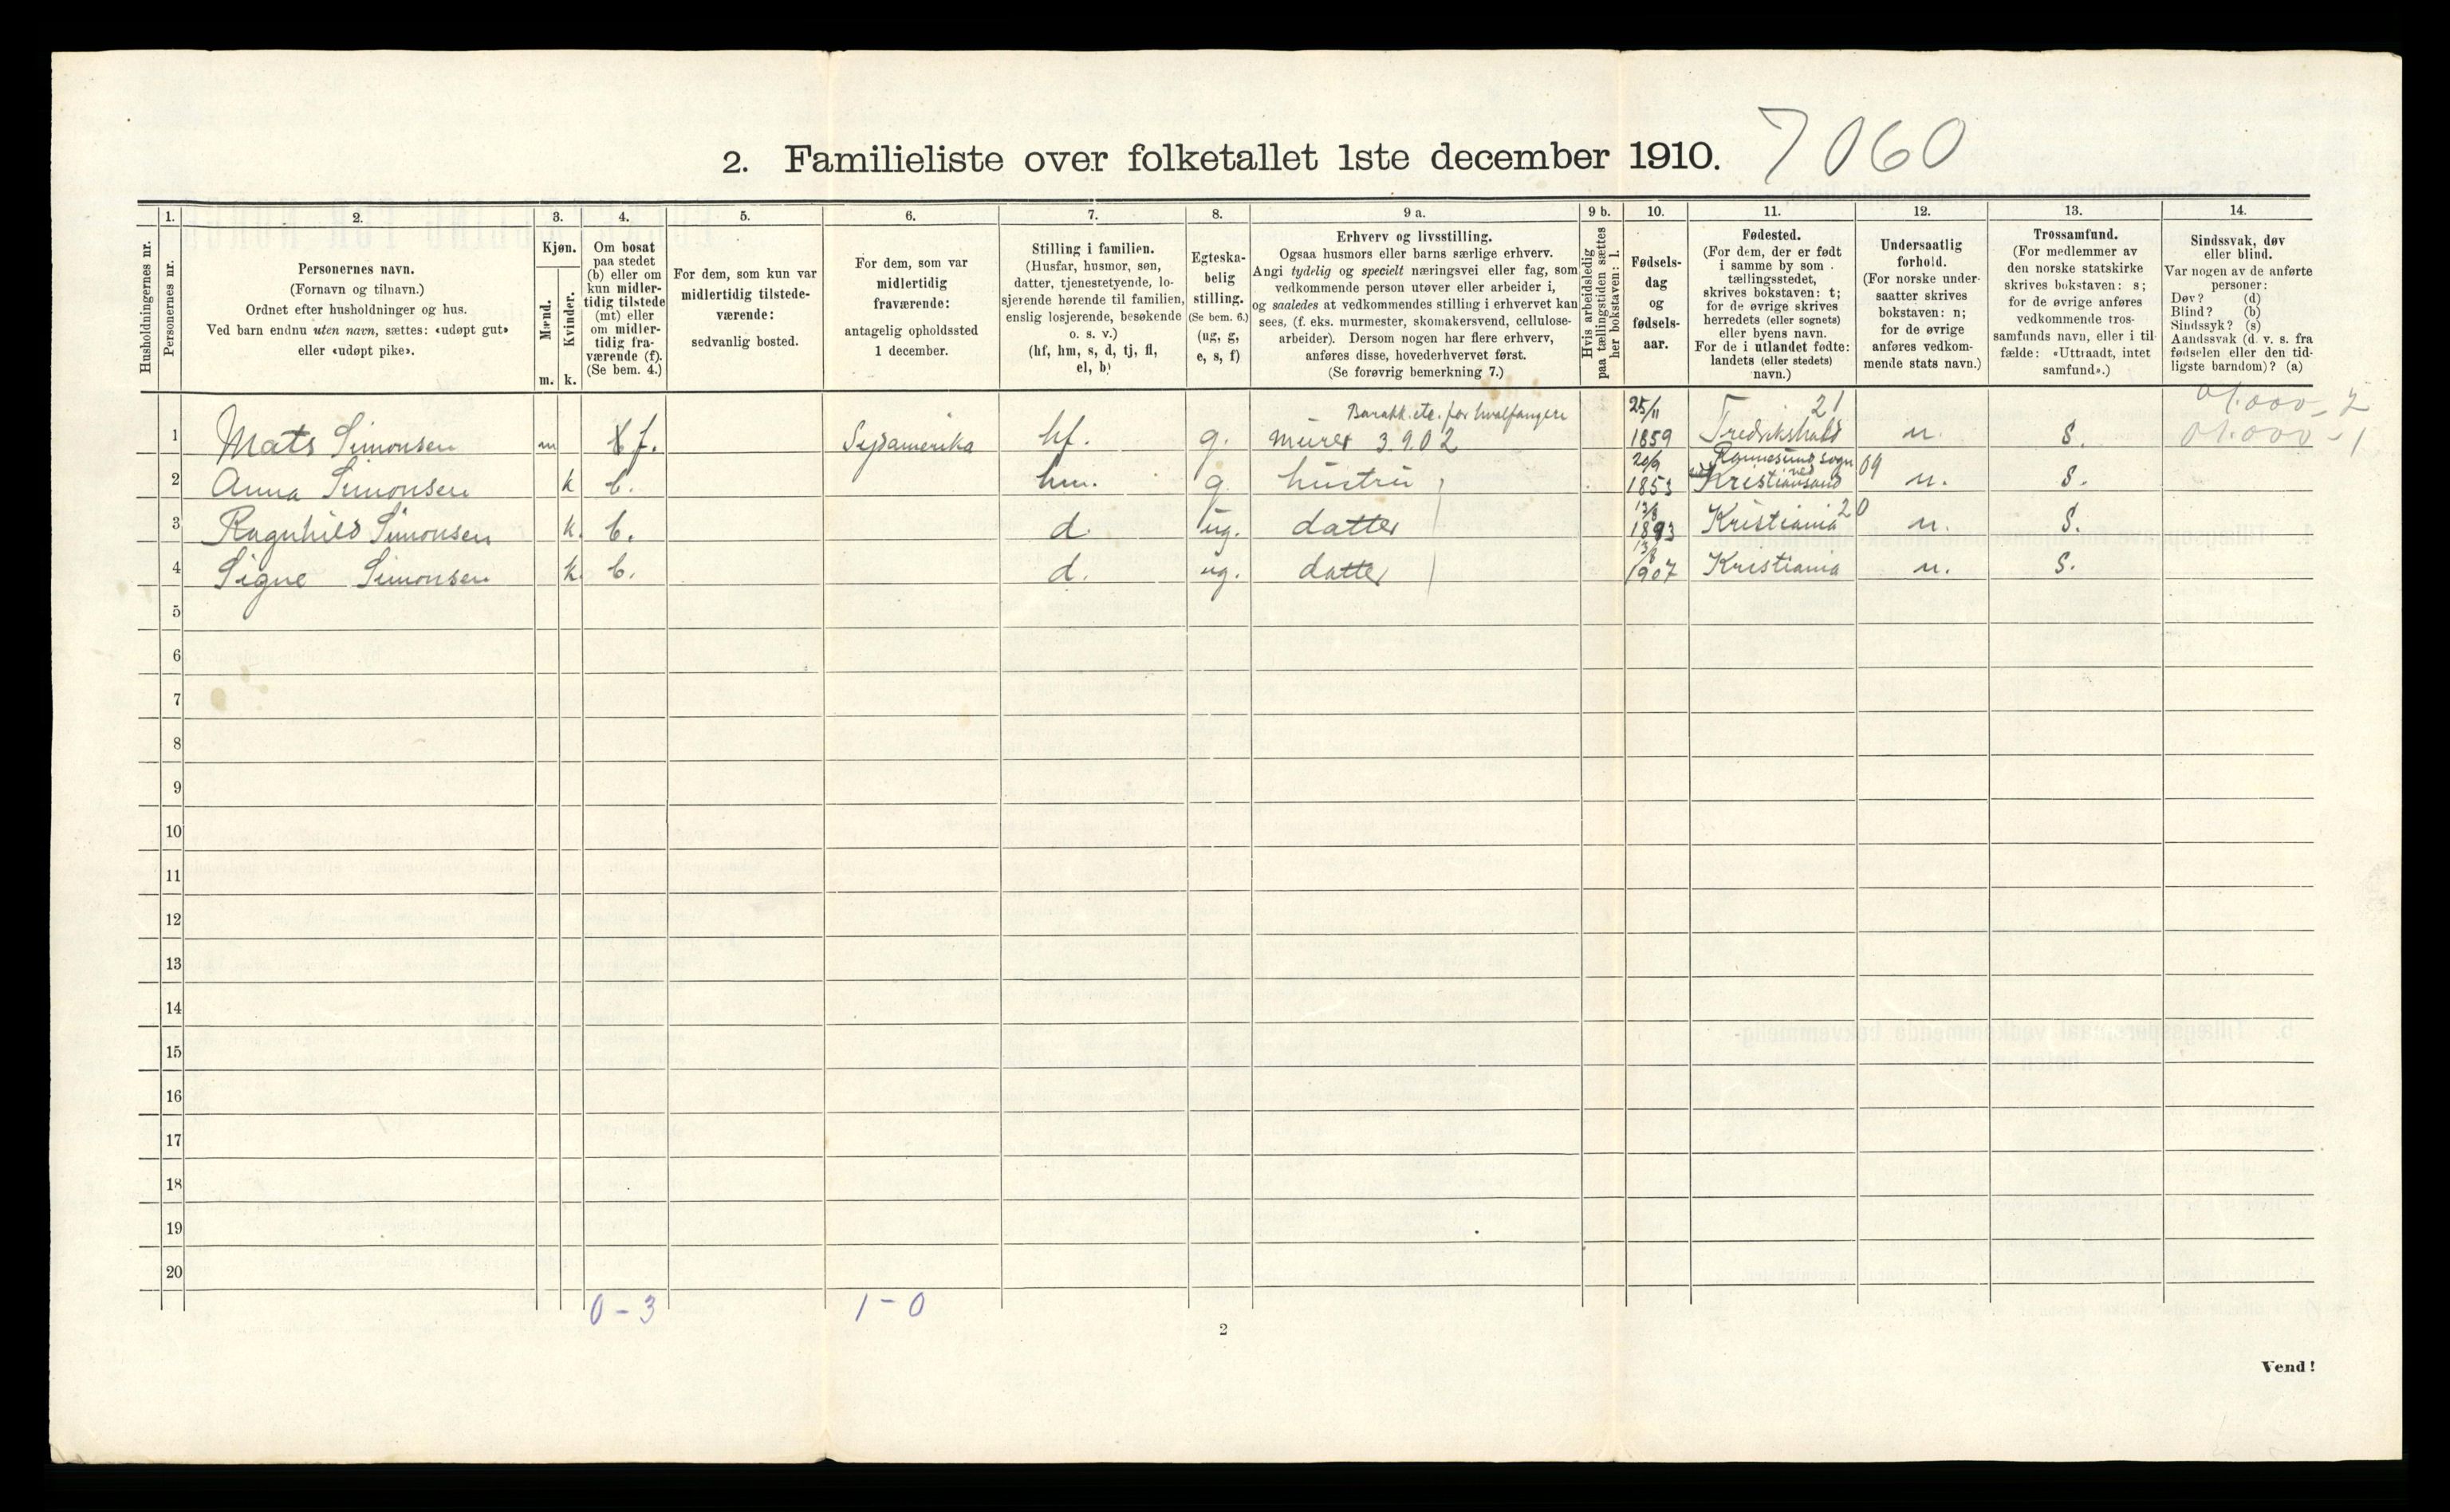 2. Familieliste over folketallet 1ste december 1910. 7060
Husholdningernes nr.
1.
Personernes nr.
2.
Personernes navn.
(Fornavn og tilnavn.)
Ordnet efter husholdninger og hus.
Ved barn endnu uten navn, sættes: «udøpt gut»
eller «udøpt pike».
3.
Kjøn.
Mænd.
Kvinder.
m. k.
4.
Om bosat
paa stedet
(b) eller om
kun midler-
tidig tilstede
(mt) eller
om midler-
tidig fra-
værende (f).
(Se bem. 4.)
5.
For dem, som kun var
midlertidig tilstede-
værende:
sedvanlig bosted.
6.
For dem, som var
midlertidig
fraværende:
antagelig opholdssted
1 december.
7.
Stilling i familien.
(Husfar, husmor, søn,
datter, tjenestetyende, lo-
sjerende hørende til familien,
enslig losjerende, besøkende
o. s. v.)
(hf, hm, s, d, tj, fl,
el, b)
8.
Egteska-
belig
stilling.
(Se bem. 6.)
(ug, g,
e, s, f)
9 a.
Erhverv og livsstilling.
Ogsaa husmors eller barns særlige erhverv.
Angi tydelig og specielt næringsvei eller fag, som
vedkommende person utøver eller arbeider i,
og saaledes at vedkommendes stilling i erhvervet kan
sees, (f. eks. murmester, skomakersvend, cellulose-
arbeider). Dersom nogen har flere erhverv,
anføres disse, hovederhvervet først.
(Se forøvrig bemerkning 7.)
9 b.
Hvis arbeidsledig
paa tællingstiden sættes
her bokstaven: l.
10.
Fødsels-
dag
og
fødsels-
aar.
11.
Fødested.
(For dem, der er født
i samme by som
tællingsstedet,
skrives bokstaven: t;
for de øvrige skrives
herredets (eller sognets)
eller byens navn.
For de i utlandet fødte:
landets (eller stedets)
navn.)
12.
Undersaatlig
forhold.
(For norske under-
saatter skrives
bokstaven: n;
for de øvrige
anføres vedkom-
mende stats navn.)
13.
Trossamfund.
(For medlemmer av
den norske statskirke
skrives bokstaven: s;
for de øvrige anføres
vedkommende tros-
samfunds navn, eller i til-
fælde: «Uttraadt, intet
samfund».)
14.
Sindssvak, døv
eller blind.
Var nogen av de anførte
personer:
Døv? (d)
Blind? (b)
Sindssyk? (s)
Aandssvak (d. v. s. fra
fødselen eller den tid-
ligste barndom)? (a)
Barakk. etc. for hvalfangere 25/11 21 01.000-2
1 Mats Simonsen m f. Sydamerika hf. g. murer 3.9.02 1859 Fredrikshald n. s. 01.000-1
20/9 sogn ved 09
2 Anna Simonsen k b. hm. g. hustru 1853 Kristiansand n. s.
13/8 20
3 Ragnhild Simonsen k. b. d. ug. datter 1893 Kristiania n. s.
13/8
4 Signe Simonsen k. b. d. ug. datter 1907 Kristiania n. s.
5
6
7
8
9
10
11
12
13
14
15
16
17
18
19
20
0-3 1-0
2
Vend!